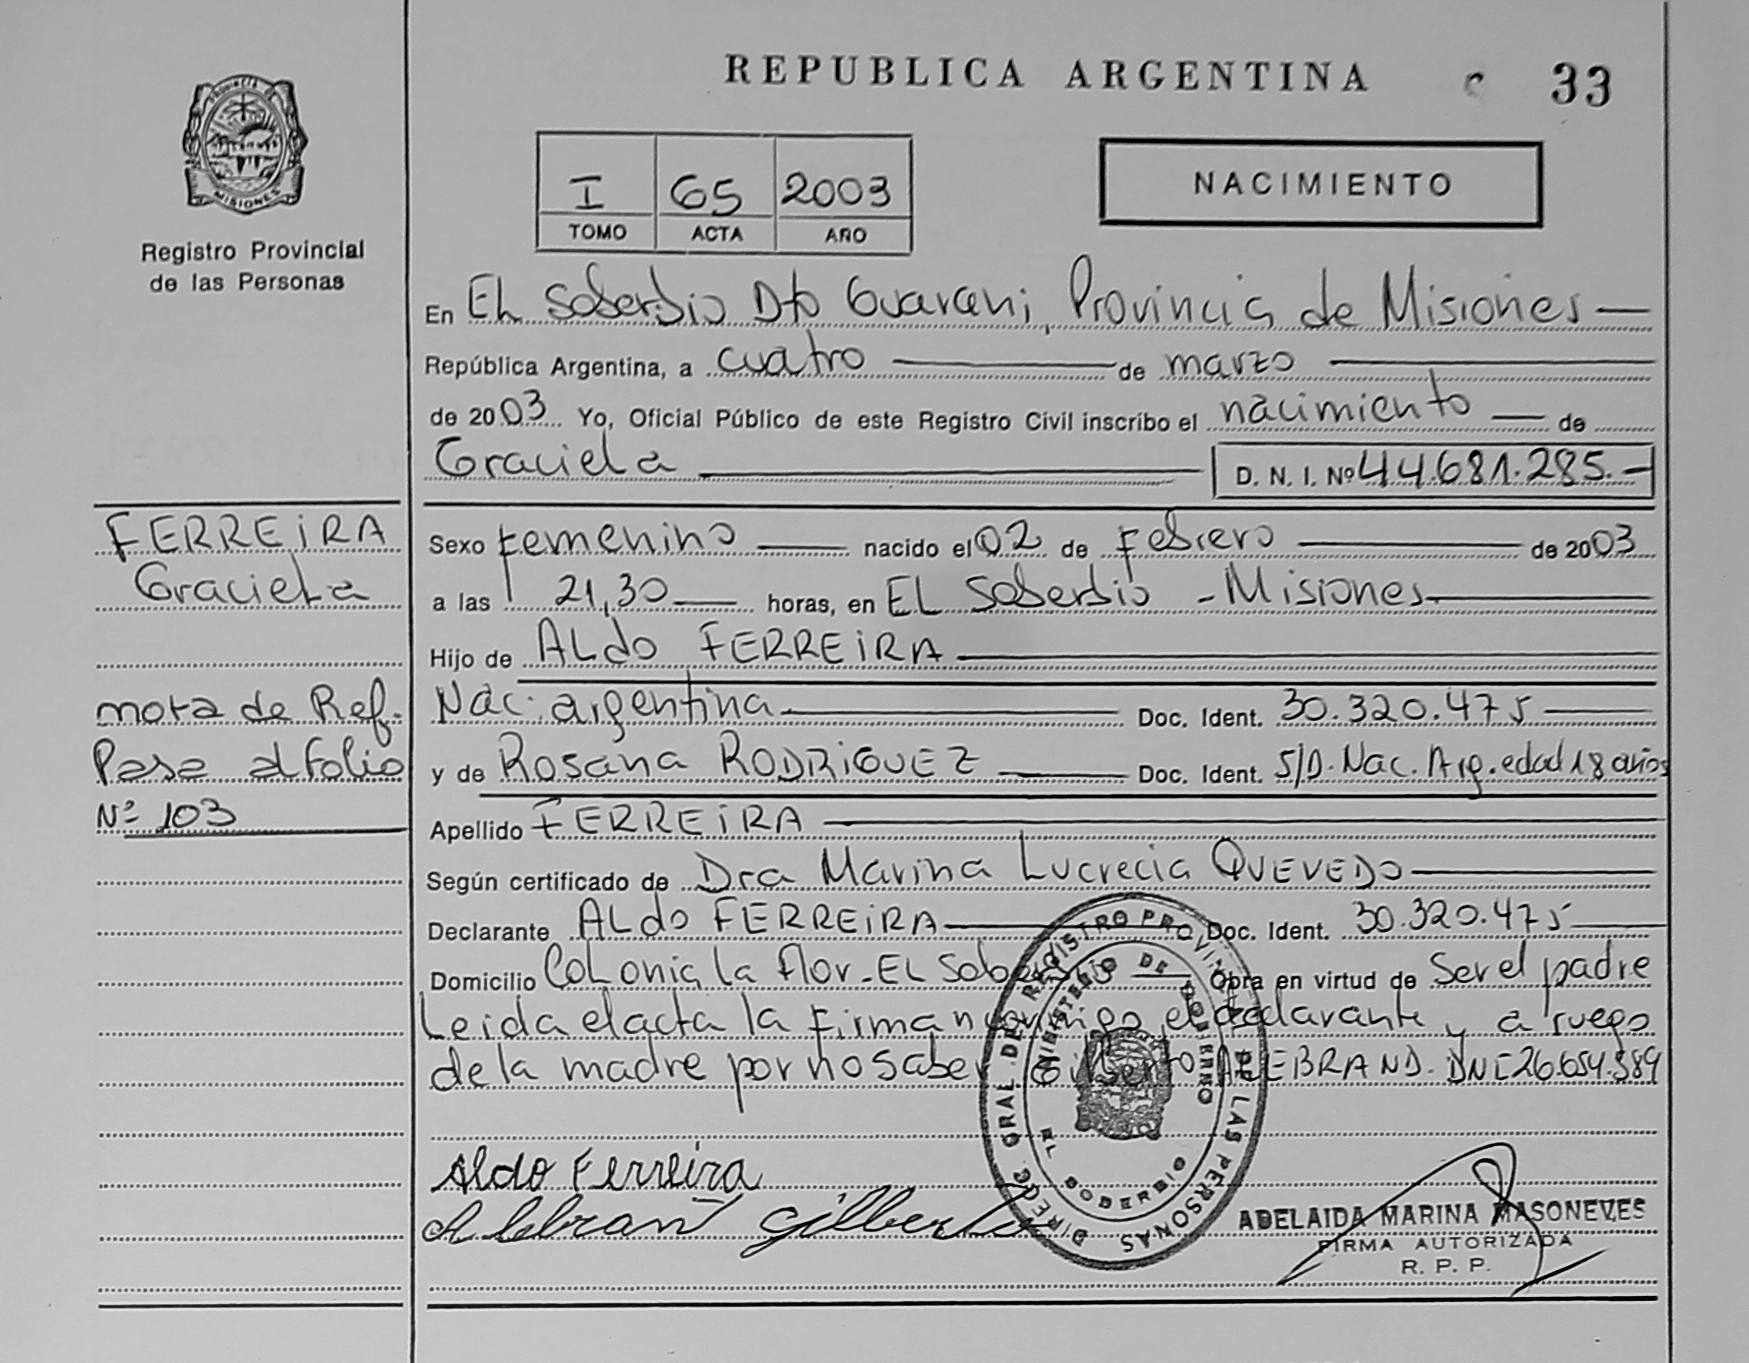 REPUBLICA ARGENTINA 33
PROVINCIA DE
MISIONES
Registro Provincial
de las Personas
I 65 2003
TOMO ACTA AÑO
NACIMIENTO
En EL Soberbio Dto Guarani, Provincia de Misiones
República Argentina, a cuatro de marzo
de 2003 Yo, Oficial Público de este Registro Civil inscribo el nacimiento de
Graciela D. N. I. Nº 44.681.285.-
FERREIRA
Graciela
nota de Ref.
Pasa al folio
Nº 103
Sexo Femenino nacido el 02 de Febrero de 2003
a las 21,30 horas, en EL Soberbio - Misiones
Hijo de ALdo FERREIRA
Nac. argentina Doc. Ident. 30.320.475
y de Rosana RODRIGUEZ Doc. Ident. S/D. Nac. Arg. edad 18 años
Apellido FERREIRA
Según certificado de Dra Marina Lucrecia QUEVEDO
Declarante ALdo FERREIRA Doc. Ident. 30.320.475
Domicilio Colonia la Flor - EL Soberbio Obra en virtud de Ser el padre
Leida el acta la Firman conmigo el declarante y a ruego
de la madre por no saber Gilberto ALEBRAND. DNI 26.654.389
Aldo Ferreira
Gilberto
DIREC. GRAL. DE REGISTRO PROVINCIAL DE LAS PERSONAS
MINISTERIO DE GOBIERNO
EL SOBERBIO
ADELAIDA MARINA MASONEVES
FIRMA AUTORIZADA
R. P. P.